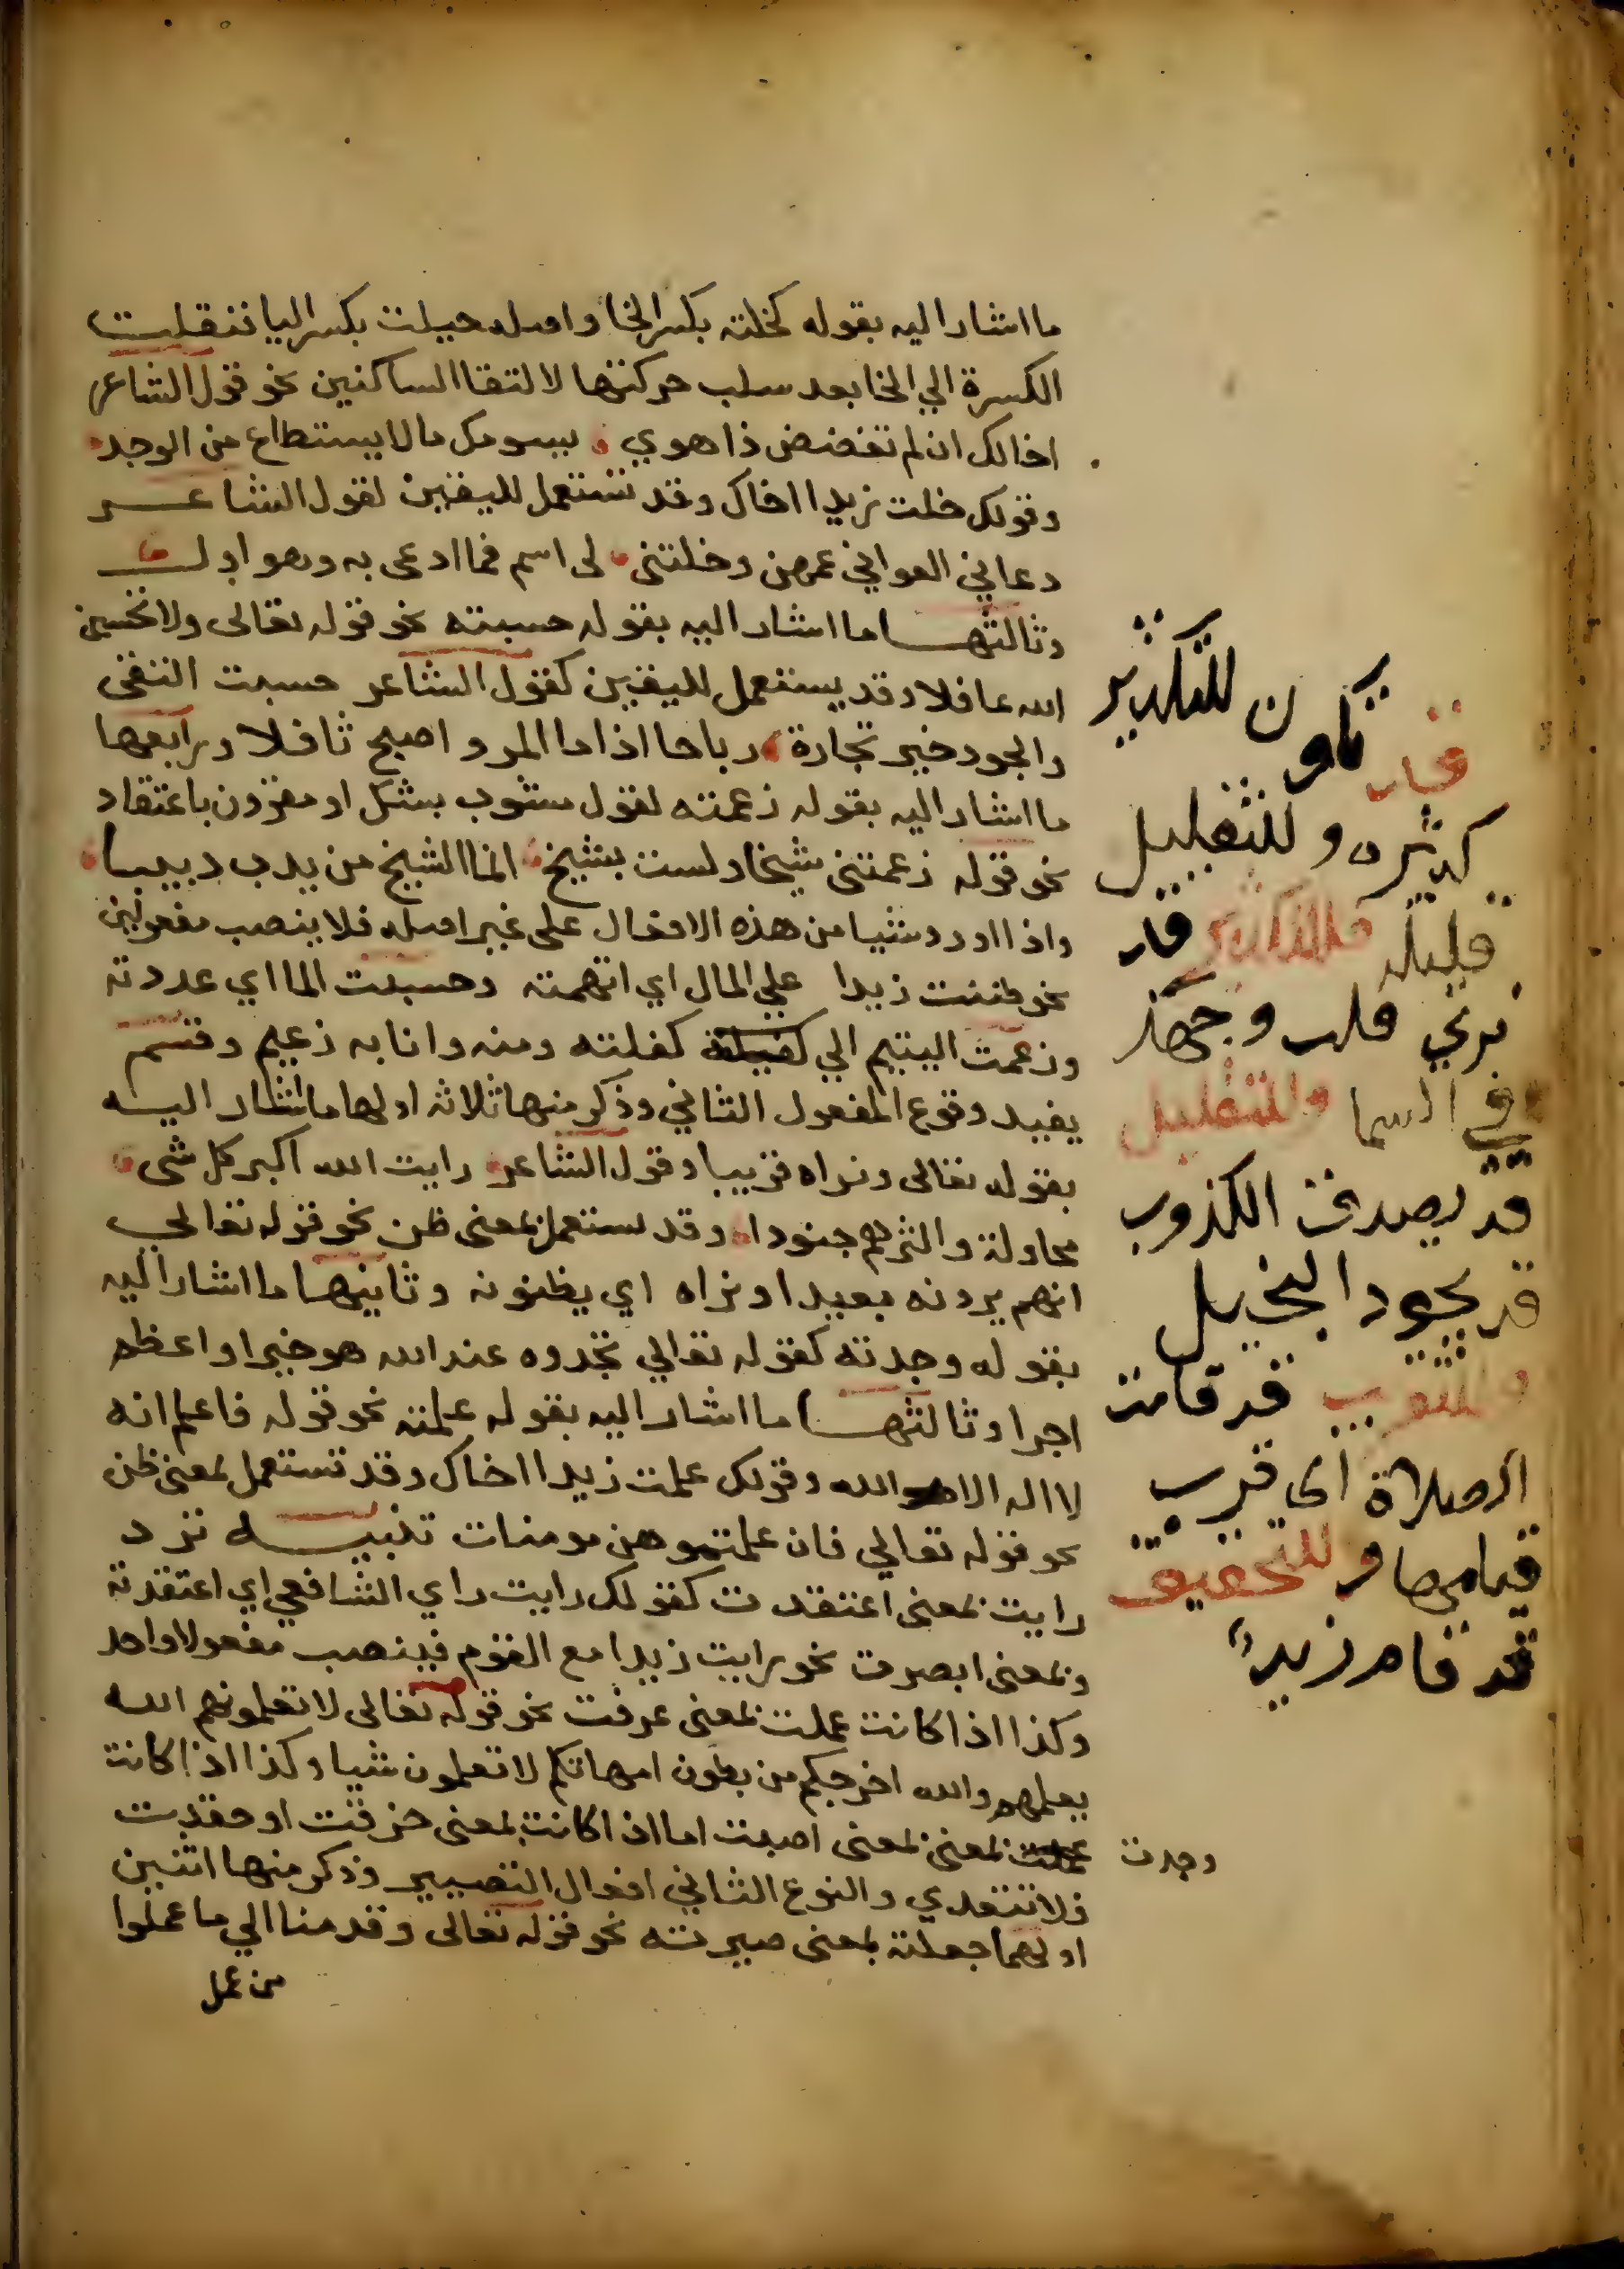 ما اشار اليه بقوله كخلته بكسر الخا واصله خيلت بكسر اليا فنقلت
الكسرة الي الخا بعد سلب حركتها لالتقا الساكنين نحو قول الشاعر
اخالك ان لم تغضض ذا هوي يسومك مالا يستطاع من الوجد
وقولك خلت زيدا اخاك وقد تستعمل لليقين لقول الشاعر
دعاني الغواني عمهن وخلتني لى اسم فما ادعى به وهو اول
وثالثها ما اشار اليه بقوله حسبته نحو قوله تعالى ولا تحسبن
الله غافلا وقد يستعمل لليقين كقول الشاعر حسبت التقى
والجود خير تجارة رباحا اذا ما المرو اصبح ثاقلا ورابعها
ما اشار اليه بقوله زعمته لقول مشوب بشك او مقرون باعتقاد
نحو قوله زعمتنى شيخا ولست بشيخ انما الشيخ من يدب دبيبا
واذا اورد شيا من هذه الافعال على غير اصله فلا ينصب مفعولين
نحو ظننت زيدا علي المال اي اتهمته وحسبت الما اي عددته
وزعمت اليتيم الي كفلته ومنه وانا به زعيم وقسم
يفيد وقوع المفعول الثاني وذكر منها ثلاثة اولها ما اشار اليه
بقوله تعالى ونراه قريبا وقول الشاعر رايت الله اكبر كل شى
محاولة واكثرهم جنودا وقد تستعمل بمعنى ظن نحو قوله تعالي
انهم يرونه بعيدا ونراه اي يظنونه وثانيها ما اشار اليه
بقوله وجدته كقوله تعالي تجدوه عند الله هو خيرا واعظم
اجرا وثالثها ما اشار اليه بقوله علمته نحو قوله فاعلم انه
لا اله الا الله وقولك علمت زيدا اخاك وقد تستعمل بمعنى ظن
نحو قوله تعالي فان علمتموهن مومنات تنبيه ترد
رايت بمعنى اعتقدت كقولك رايت راي الشافعي اي اعتقدته
وبمعنى ابصرت نحو رايت زيدا مع القوم فينصب مفعولا واحد
وكذا اذا كانت علمت بمعنى عرفت نحو قوله تعالى لا تعلمونهم الله
يعلمهم والله اخرجكم من بطون امهاتكم لا تعلمون شيا وكذا اذا كانت
وجدت بمعنى بمعنى اصبت اما اذا كانت بمعنى حزنت او حقدت
فلا تتعدي والنوع الثاني افعال التصيير وذكر منها اثنين
اولهما جعلته بمعنى صيرته نحو قوله تعالى وقدمنا الي ما عملوا
من عمل
قد تكون للتكثير
كثيره وللتقليل
قليله فللتكثير قد
نري تقلب وجهك
في السما وللتقليل
قد يصدق الكذوب
قد يجود البخيل
وللتقريب قد قامت
الصلاة اى قرب
قيامها وللتحقيق
قد قام زيد